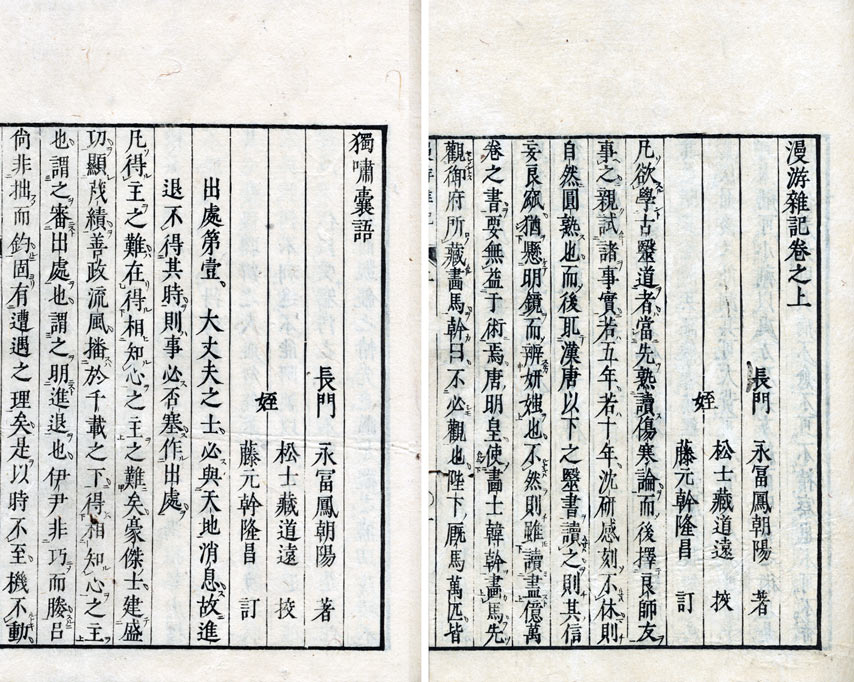 漫游雜記卷之上
長門 永冨鳳朝陽 著
松士藏道遠 挍
姪
藤元幹隆昌 訂
凡欲學古毉道者當先熟讀傷寒論而後擇良師友
事之親試諸事實若五年若十年沈研感刻不休則
自然圓熟也而後耴漢唐以下之毉書讀之則其信
妄良窳猶懸明鏡而辨妍媸也不然則雖讀盡億萬
卷之書要無益于術焉唐明皇使畫士韓幹畫馬先
觀御府所藏畫馬幹曰不必觀也陛下厩馬萬匹皆
獨嘯囊語
長門 永冨鳳朝陽 著
松士藏道遠 挍
姪
藤元幹隆昌 訂
出處第壹 大丈夫之士必與天地消息故進
退不得其時則事必否塞作出處
凡得主之難在得相知心之主之難矣豪傑士建盛
功顯茂績善政流風播於千載之下得相知心之主
也謂之審出處也謂之明進退也伊尹非巧而媵呂
尙非拙而釣固有遭遇之理矣是以時不至機不動